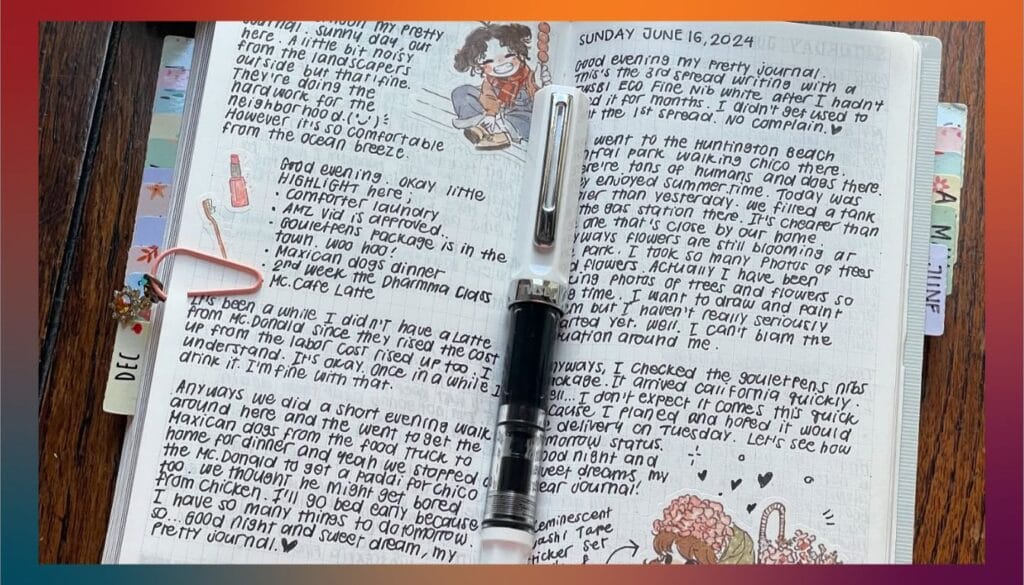 my pretty
journal. sunny day, our
here. A little bit noisy
from the landscapers
outside but that fine.
They're doing the
hard work for the
neighborhood.
However it is so comfortable
from the ocean breeze.
Good evening. okay little
HIGHLIGHT here;
• Comforter laundry
• AMZ vid is approved.
• Gouletpens package is in the
town. Woo hoo!
• Maxican dogs dinner
• 2nd week the Dharmma Class
• Mc.Cafe Latte
It's been a while I didn't have a Latte
from Mc.Donald since they rised the cost
up from the labor cost rised up too. I
understand. It's okay. Once in a while I
drink it. I'm fine with that.
Anyways we did a short evening walk
around here and the went to get the
Maxican dogs from the food truck to
home for dinner and yeah we stopped
the Mc.Donald to get a paddi for chico
too. we thought he might get bored
from chicken. I'll go bed early because
I have so many things to do tomorrow.
so... good night and sweet dream, my
pretty journal. ♥
DEC
SUNDAY JUNE 16, 2024
Good evening my pretty journal.
This's the 3rd spread writing with a
ECO Fine Nib white after I hadn't
it for months. I didn't get used to
the 1st spread. No complain. ♥
went to the Huntington Beach
park walking chico there.
tons of humans and dogs there.
enjoyed summer time. Today was
than yesterday. we filled a tank
gas station there. It's cheaper than
one that's close by our home.
flowers are still blooming at
park. I took so many photos of trees
flowers. Actually I have been
photos of trees and flowers so
time. I want to draw and paint
but I haven't really seriously
yet. well, I can't blam the
around me.
Anyways, I checked the gouletpens nibs
package. It arrived california quickly.
I don't expect it comes this quick
cause I planed and hoped it would
delivery on Tuesday. Let's see how
status.
good night and
sweet dreams, my
dear journal!
Tape
sticker set
A
M
JUNE